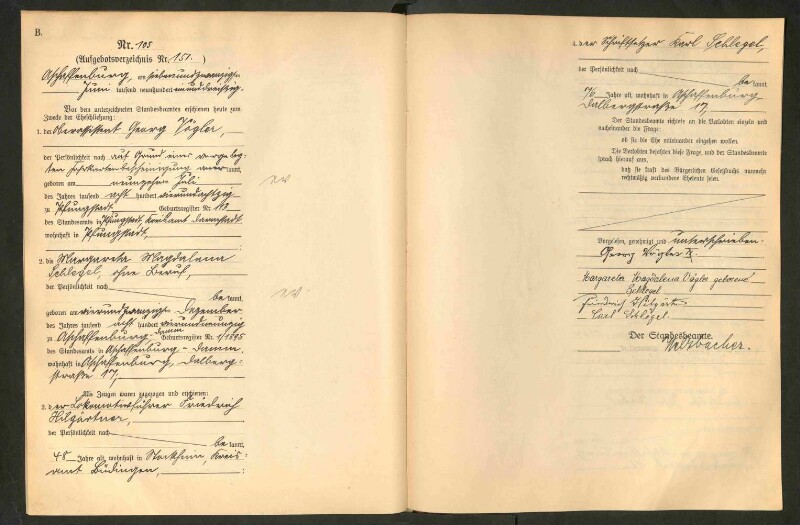 B.
Nr. 105
(Aufgebotsverzeichnis Nr. 151.)
Aschaffenburg, am siebenundzwanzigsten
Juni tausend neunhundert
Vor dem unterzeichneten Standesbeamten erschienen heute zum
Zwecke der Eheschließung:
1. der Georg Vögler,
der Persönlichkeit nach auf Grund einer vorgeleg-
ten kannt,
geboren am neunzehnten Juli
des Jahres tausend acht hundert vierundachtzig
zu Pfungstadt. Geburtsregister Nr. 113
des Standesamts in Pfungstadt, Kreisamt Darmstadt
wohnhaft in Pfungstadt,
2. die Margareta Magdalena
Schlegel, ohne Beruf,
der Persönlichkeit nach
be kannt,
geboren am vierundzwanzigsten Dezember
des Jahres tausend acht hundert vierundneunzig
zu Aschaffenburg-Damm Geburtsregister Nr. 1/1895
des Standesamts in Aschaffenburg-Damm,
wohnhaft in Aschaffenburg, Dalberg-
straße 17,
Als Zeugen waren zugezogen und erschienen:
3. der Lokomotivführer Friedrich
Hilgärtner,
der Persönlichkeit nach
be kannt,
48 Jahre alt, wohnhaft in Stockheim, Kreis-
amt Büdingen,
4. der Schriftsetzer Karl Schlegel,
der Persönlichkeit nach
be kannt,
Jahre alt, wohnhaft in Aschaffenburg
Dalbergstraße 17,
Der Standesbeamte richtete an die Verlobten einzeln und
nacheinander die Frage:
ob sie die Ehe miteinander eingehen wollen.
Die Verlobten bejahten diese Frage, und der Standesbeamte
sprach hierauf aus,
daß sie kraft des Bürgerlichen Gesetzbuchs nunmehr
rechtmäßig verbundene Eheleute seien.
Vorgelesen, genehmigt und unterschrieben.
Georg Vögler
Margareta Magdalena Vögler geborene
Schlegel
Friedrich Hilgärtner
Carl Schlegel.
Der Standesbeamte.